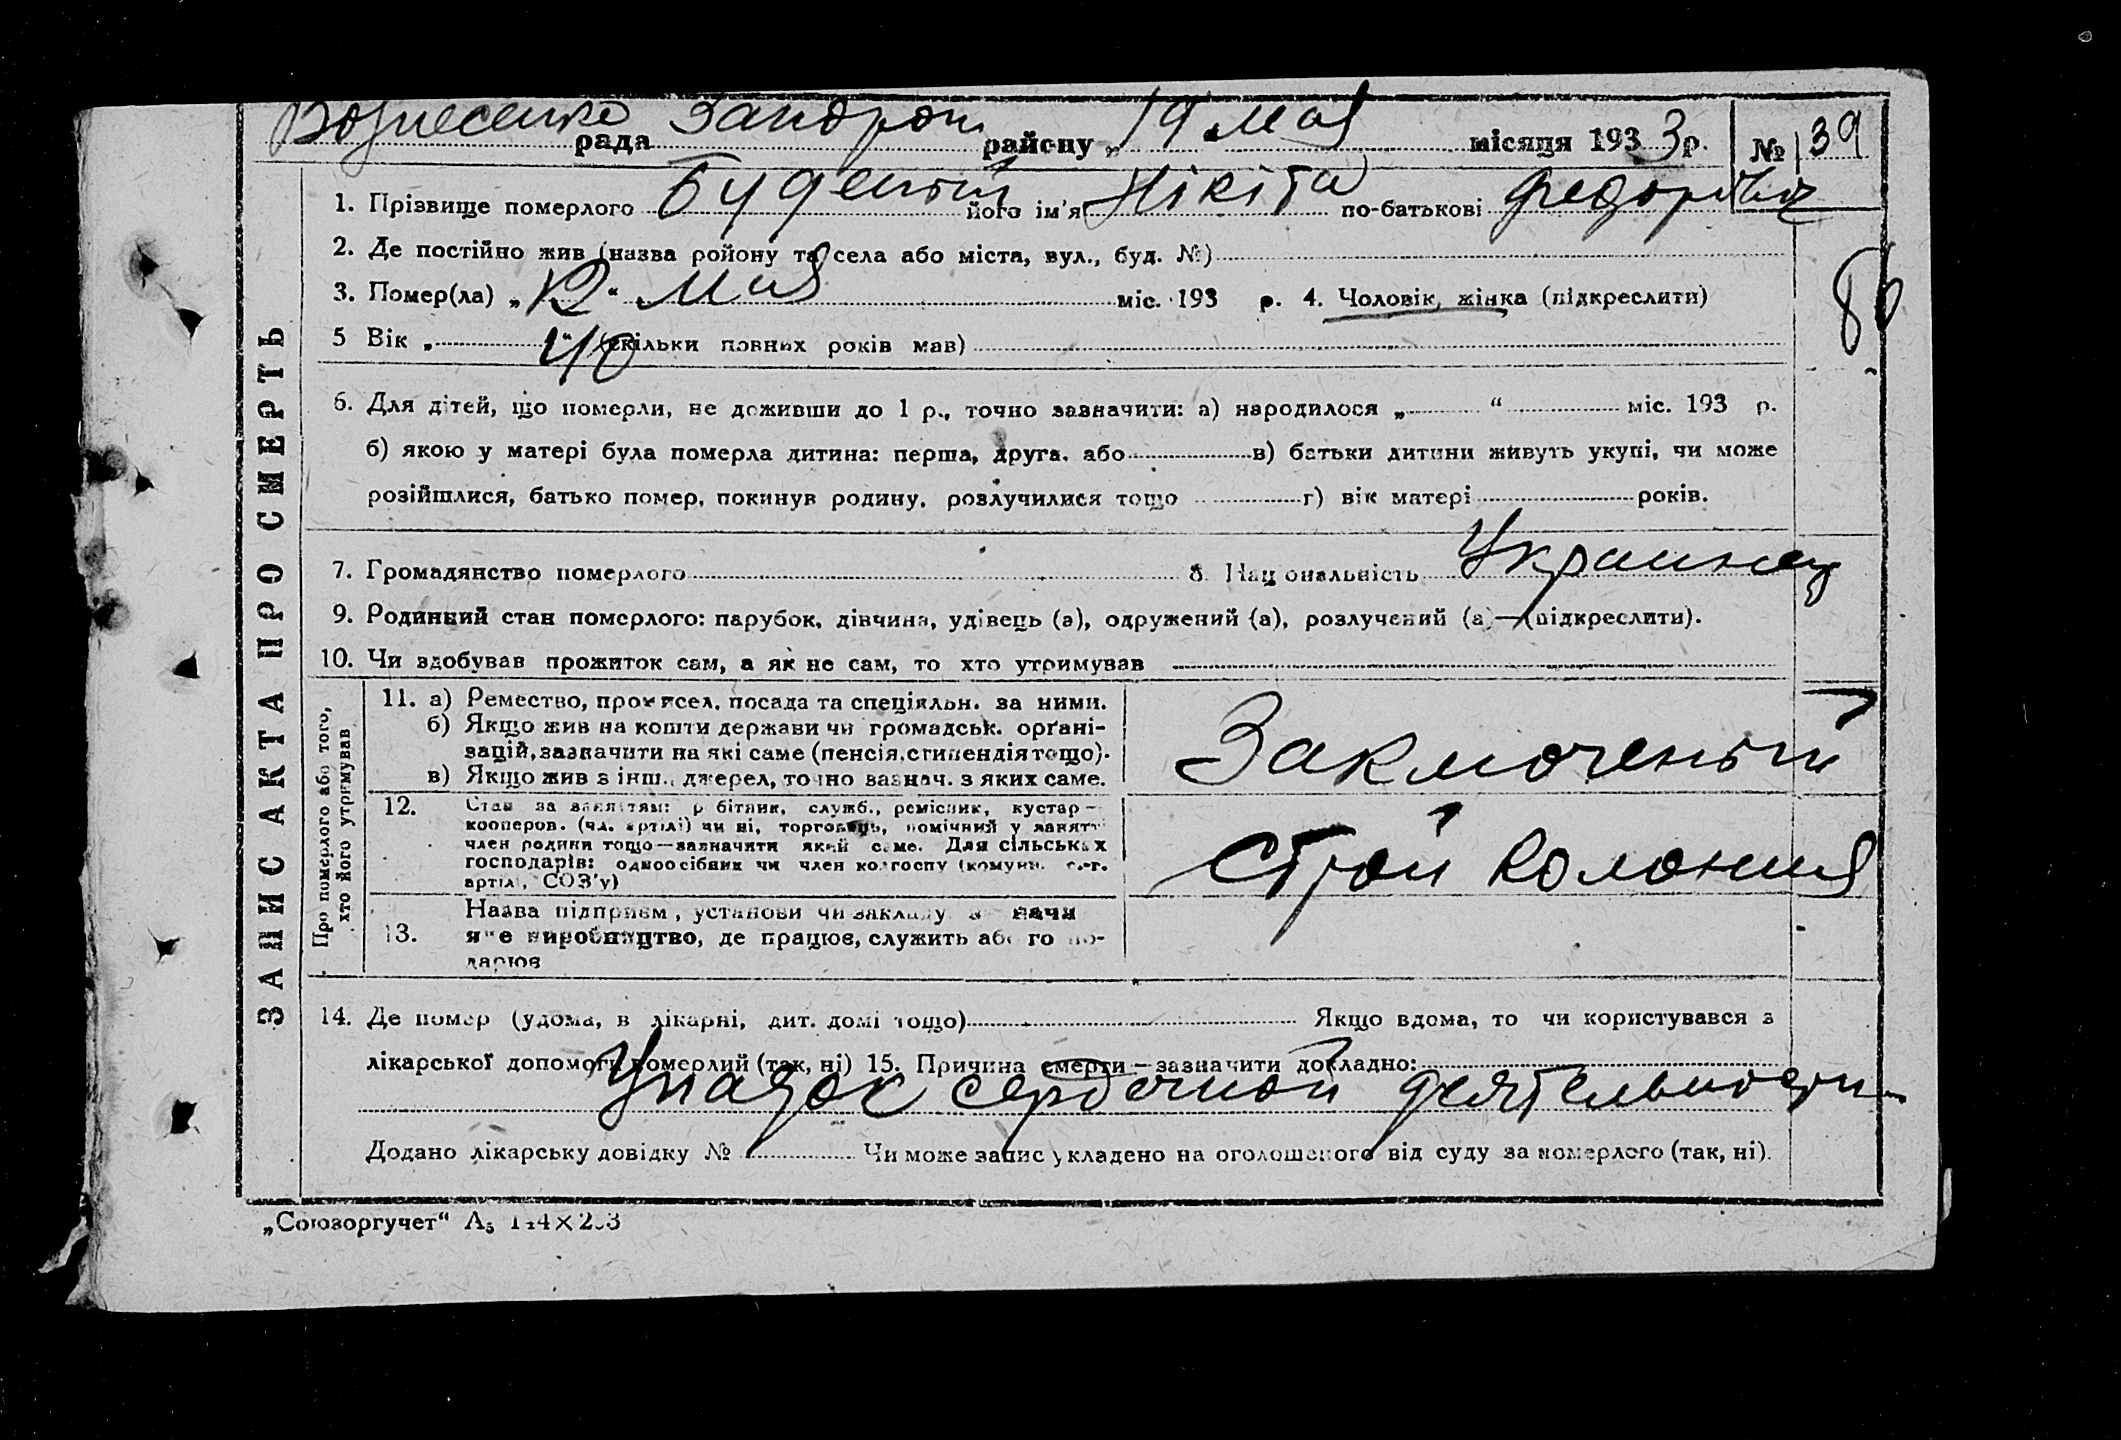 Вознесенка рада Запорож районy „ 19 “ мая місяця 1933 р. № 139
1. Прізвище померлого Буденый його ім'я Нікіта по-батькові Федорович
2. Де постійно жив (назва ройону та села або міста, вул., буд. №)
3. Помер(ла) „ 12 “ мая міс. 193 р. 4. Чоловік, жінка (підкреслити)
5 Вік „ 40 “ (скільки повних років мав)
6. Для дітей, що померли, не доживши до 1 р., точно зазначити: а) народилося „ “ міс. 193 р.
б) якою у матері була померла дитина: перша, друга, або в) батьки дитини живуть укупі, чи може
розійшлися, батько помер, покинув родину, розлучилися тощо г) вік матері років.
7. Громадянство померлого 8. Національність Украинец
9. Родинний стан померлого: парубок, дівчина, удівець (а), одружений (а), розлучений (а)—(підкреслити).
10. Чи здобував прожиток сам, а як не сам, то хто утримував
ЗАПИС АКТА ПРО СМЕРТЬ
Про померлого або того,
хто його утримував
11. а) Ремество, промисел, посада та спеціяльн. за ними.
б) Якщо жив на кошти держави чи громадськ. органі-
зацій, зазначити на які саме (пенсія, стипендія тощо).
в) Якщо жив з інш. джерел, точно зазнач. з яких саме.
Заключеный
12. Стан за заняттям: робітник, служб., ремісник, кустар —
кооперов. (чл. артілі) чи ні, торговець, помічний у занятті
член родини тощо—зазначити який саме. Для сільських
господарів: одноосібник чи член колгоспу (комуни, с.-г.
артілі, СОЗ'у)
Строй колония
13. Назва підприєм., установи чи закладу
яке виробництво, де працює, служить або го по-
дарює
14. Де помер (удома, в лікарні, дит. домі тощо) Якщо вдома, то чи користувався з
лікарської допомоги померлий (так, ні) 15. Причина смерти — зазначити докладно:
Упадок сердечной деятельности
Додано лікарську довідку № Чи може запис укладено на оголошеного від суду за померлого (так, ні).
„Союзоргучет“ А₅